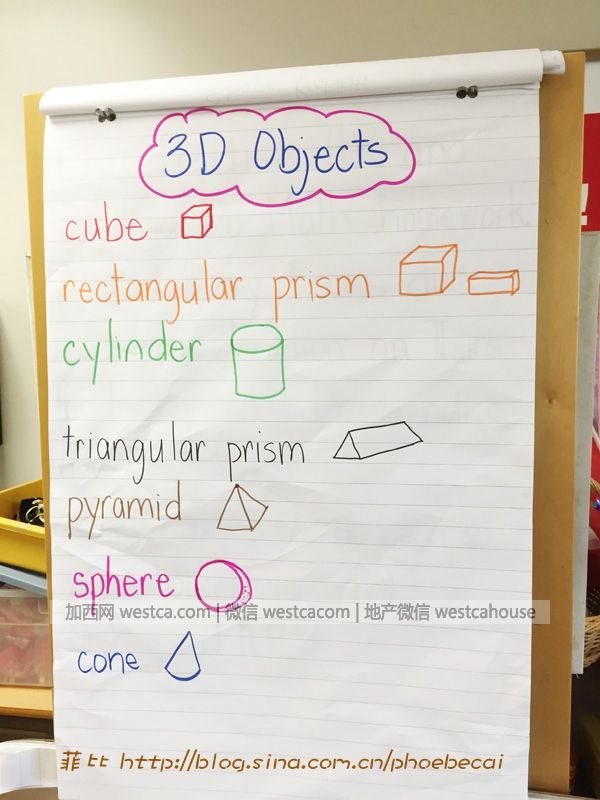 3D Objects
cube
rectangular prism
cylinder
triangular prism
pyramid
sphere
加西网 westca.com | 微信 westcacom | 地产微信 westcahouse
cone
菲比 http://blog.sina.com.cn/phoebecai